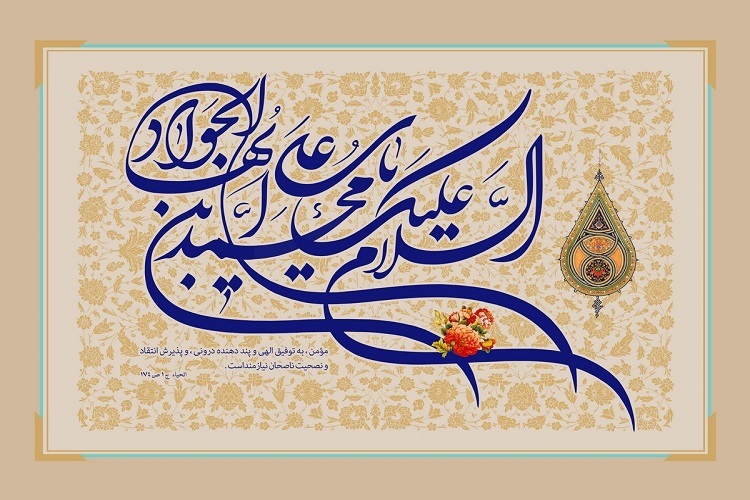 السلام علیک یا محمد بن علی ایها الجواد
مؤمن ، به توفیق الهی و پند دهنده درونی ، و پذیرش انتقاد
و نصحیت ناصحان نیازمنداست .
الحیاه ج ۱ ص ۱۷۴